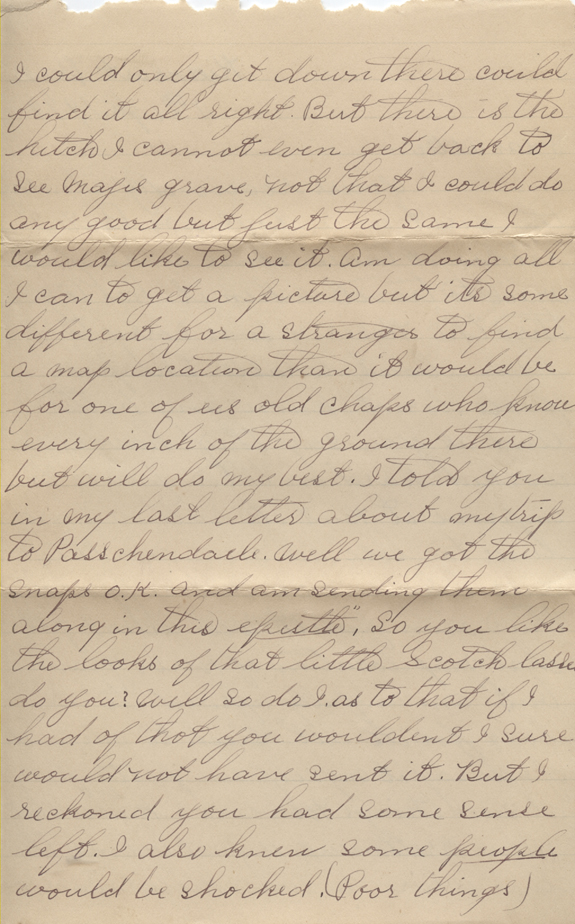 I could only get down there could
find it all right. But there is the
hitch I cannot even get back to
see Majis grave, not that I could do
any good but just the same I
would like to see it. Am doing all
I can to get a picture but its some
different for a stranger to find
a map location than it would be
for one of us old chaps who know
every inch of the ground there
but will do my best. I told you
in my last letter about my trip
to Passchendaele. Well we got the
snaps O.K. and am sending them
along in this epistle". So you like
the looks of that little Scotch lassie
do you? Well so do I. as to that if I
had of thot you wouldent I sure
would not have sent it. But I
reckoned you had some sense
left. I also knew some people
would be shocked. (Poor things)